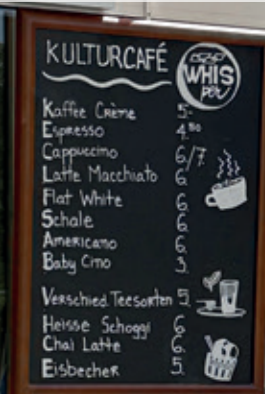 KULTURCAFÉ
WHIS
PER
Kaffee Crème 5.-
Espresso 4.80
Cappuccino 6/7.
Latte Macchiato 6.
Flat White 6.
Schale 6.
Americano 6.
Baby Cino 3.
Verschied. Teesorten 5.
Heisse Schoggi 6.
Chai Latte 6.
Eisbecher 5.